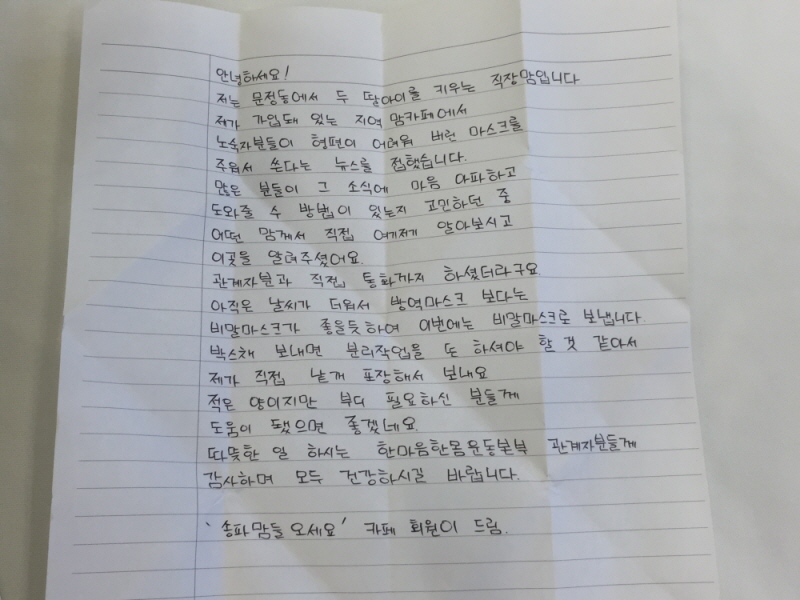 안녕하세요!
저는 문정동에서 두 딸아이를 키우는 직장맘입니다
제가 가입돼 있는 지역 맘카페에서
노숙자분들이 형편이 어려워 버린 마스크를
주워서 쓴다는 뉴스를 접했습니다.
많은 분들이 그 소식에 마음 아파하고
도와줄 수 방법이 있는지 고민하던 중
어떤 맘께서 직접 여기저기 알아보시고
이곳을 알려주셨어요.
관계자분과 직접 통화까지 하셨더라구요
아직은 날씨가 더워서 방역마스크 보다는
비말마스크가 좋을듯하여 이번에는 비말마스크로 보냅니다.
박스채 보내면 분리작업을 또 하셔야 할 것 같아서
제가 직접 낱개 포장해서 보내요
적은 양이지만 부디 필요하신 분들께
도움이 됐으면 좋겠네요.
따뜻한 일 하시는 한마음한몸운동본부 관계자분들께
감사하며 모두 건강하시길 바랍니다.
'송파맘들오세요' 카페 회원이 드림.